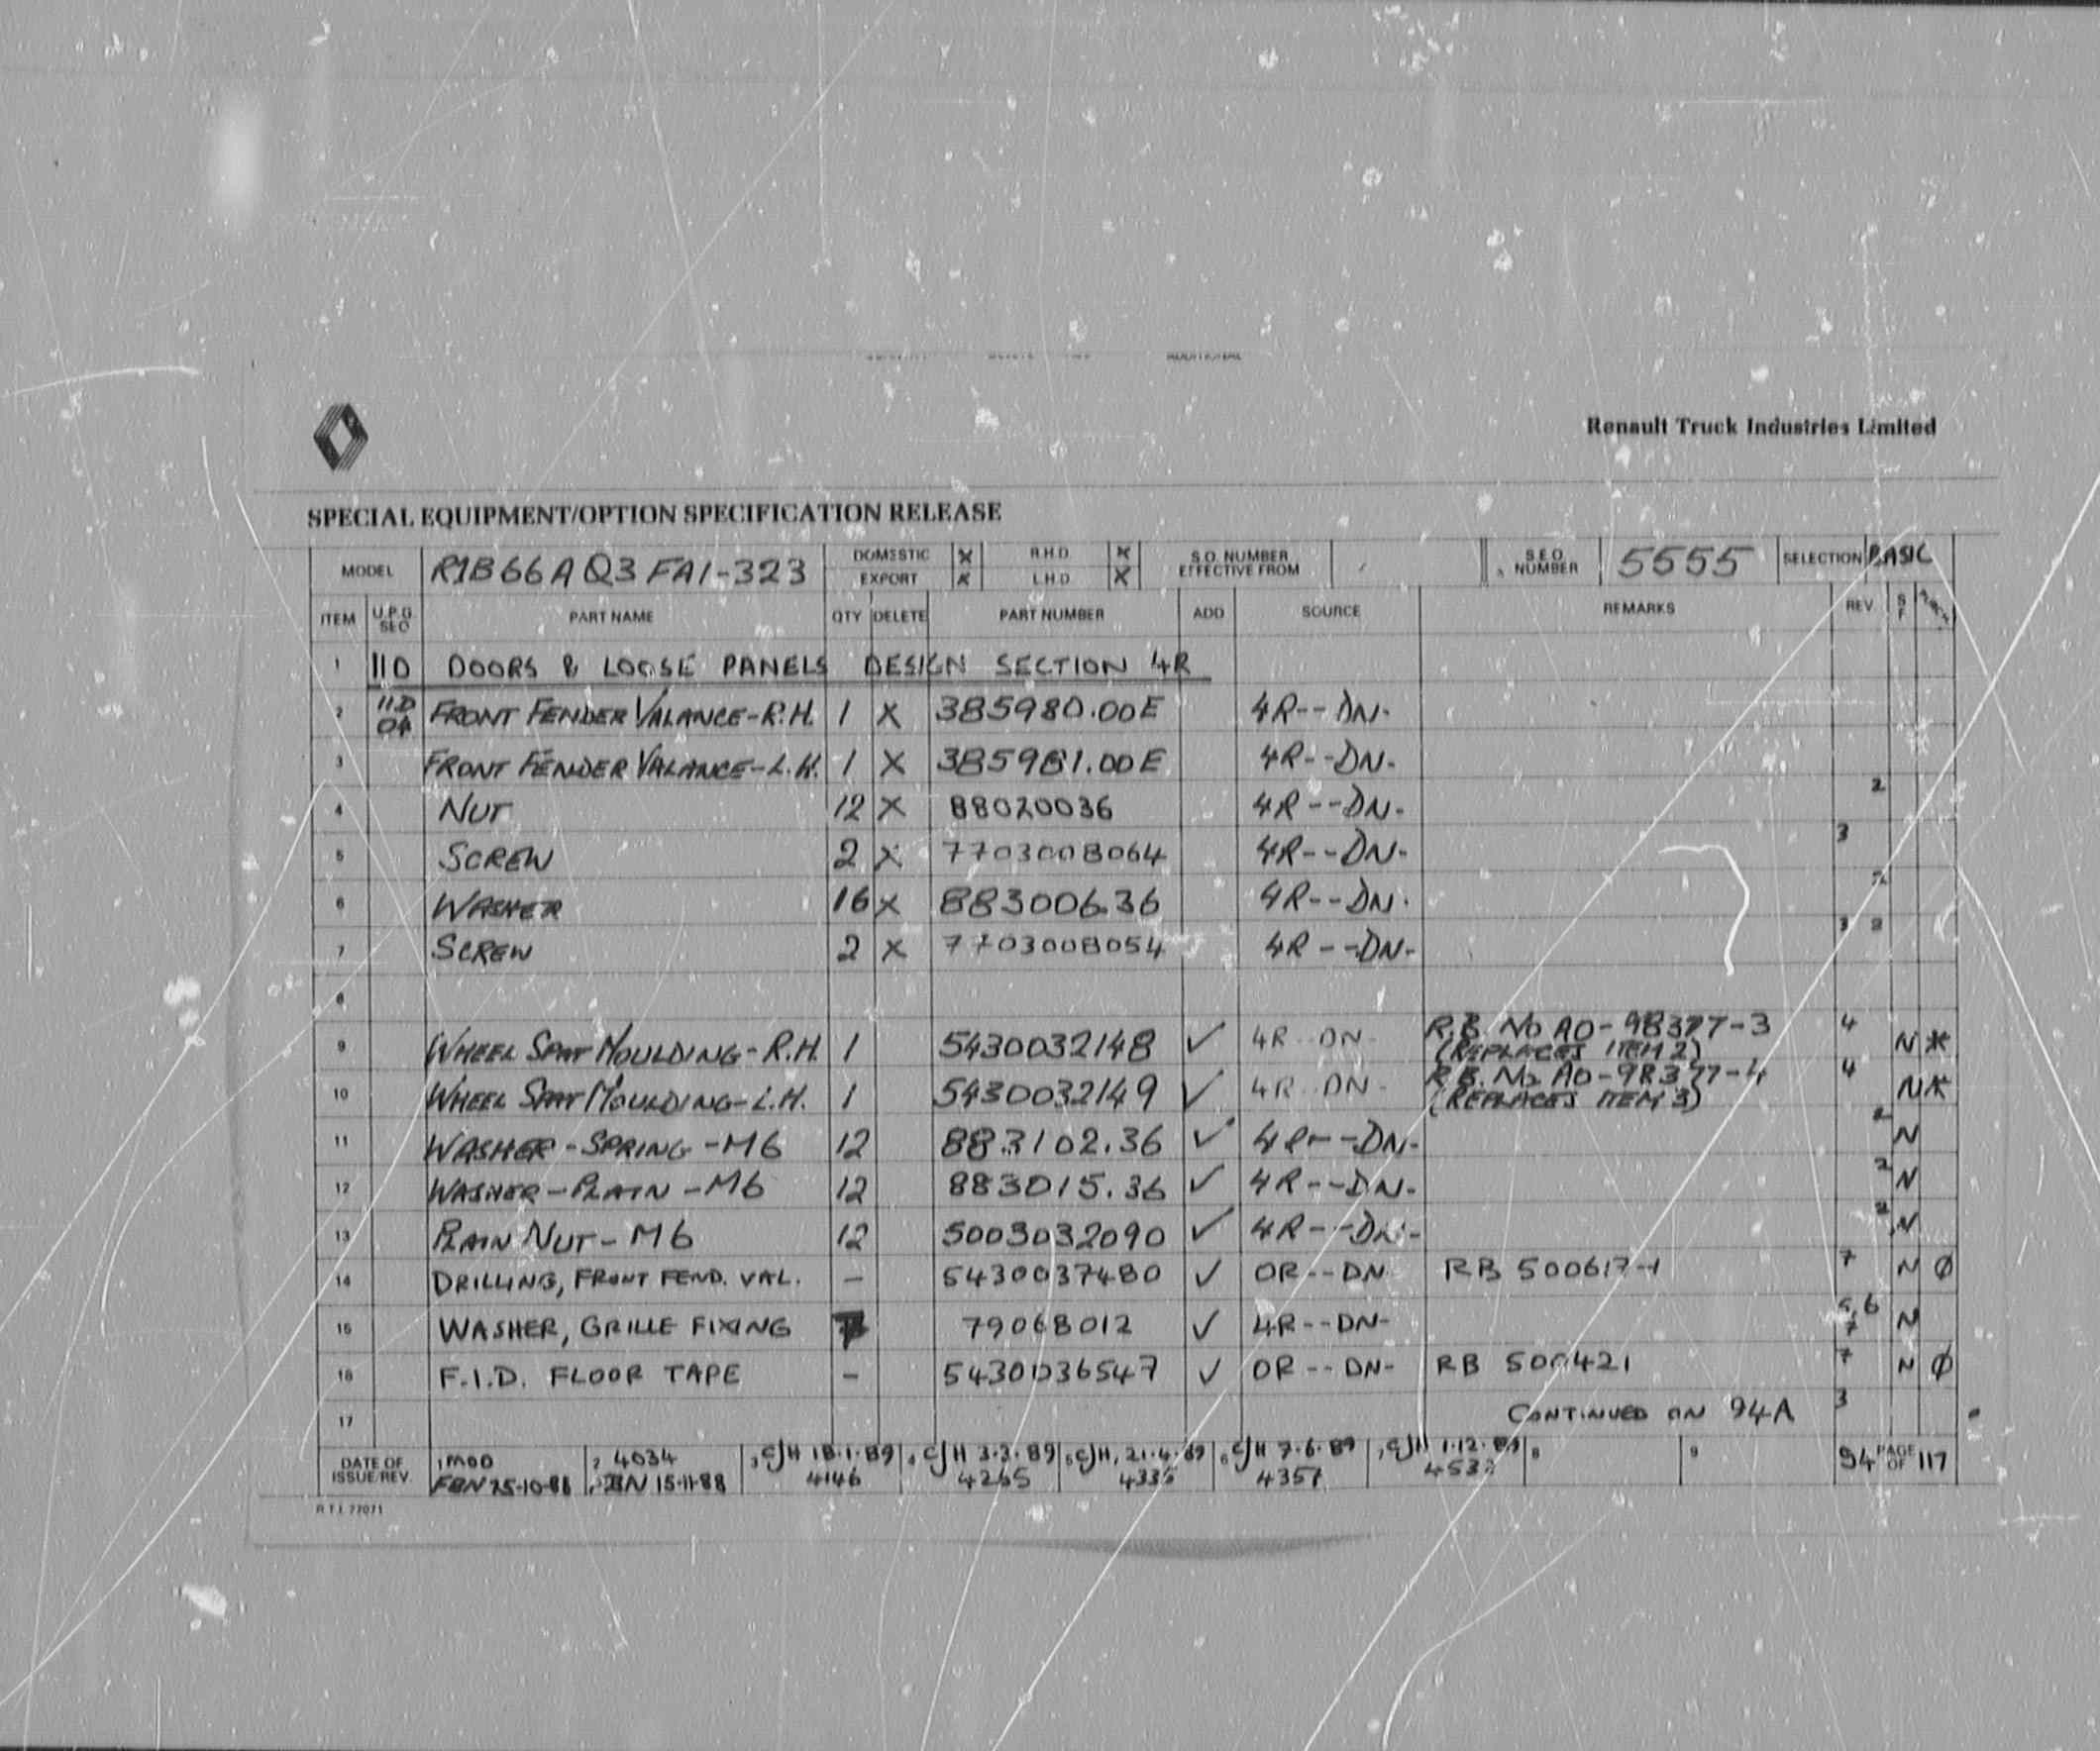 Renault Truck Industries Limited
SPECIAL EQUIPMENT/OPTION SPECIFICATION RELEASE
MODEL R1B66AQ3FA1-323 DOMESTIC X R.H.D. X S.O. NUMBER EFFECTIVE FROM S.E.O. NUMBER 5555 SELECTION BASIC
EXPORT X L.H.D. X
ITEM U.P.G. SEQ PART NAME QTY DELETE PART NUMBER ADD SOURCE REMARKS REV S F
1 11D DOORS & LOOSE PANELS DESIGN SECTION 4R
2 11D 04 FRONT FENDER VALANCE-R.H. 1 X 385980.00E 4R--DN-
3 FRONT FENDER VALANCE-L.H. 1 X 385981.00E 4R--DN-
4 NUT 12 X 88020036 4R--DN- 2
5 SCREW 2 X 7703008064 4R--DN- 3
6 WASHER 16 X 883006.36 4R--DN- 2
7 SCREW 2 X 7703008054 4R--DN- 3 2
8
9 WHEEL SPAT MOULDING-R.H. 1 5430032148 ✓ 4R--DN- R.B. No AO-98377-3 (REPLACES ITEM 2) 4 N *
10 WHEEL SPAT MOULDING-L.H. 1 5430032149 ✓ 4R--DN- R.B. No AO-98377-4 (REPLACES ITEM 3) 4 N *
11 WASHER-SPRING-M6 12 883102.36 ✓ 4R--DN- 2 N
12 WASHER-PLAIN-M6 12 883015.36 ✓ 4R--DN- 2 N
13 PLAIN NUT-M6 12 5003032090 ✓ 4R--DN- 2 N
14 DRILLING, FRONT FEND. VAL. - 5430037480 ✓ OR--DN RB 500617-1 7 N Ø
15 WASHER, GRILLE FIXING 79068012 ✓ 4R--DN- 5,6 7 N
16 F.I.D. FLOOR TAPE - 5430036547 ✓ OR--DN- RB 500421 7 N Ø
17 CONTINUED ON 94A 3
DATE OF ISSUE/REV. 1 MOD 2 4034 3 CJH 18.1.89 4 CJH 3.3.89 5 CJH, 21.4.89 6 CJH 7.6.89 7 CJH 1.12.89 8 9 94 PAGE OF 117
FBN 25-10-88 15-11-88 4146 4265 4335 4357
R.T.I. 77071